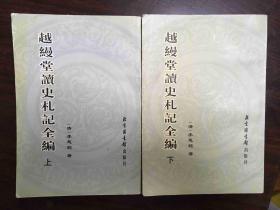 越縵堂讀史札記全編
上
(清)李慈銘 著
北京圖書館出版社
越縵堂讀史札記全編
下
(清)李慈銘 著
北京圖書館出版社